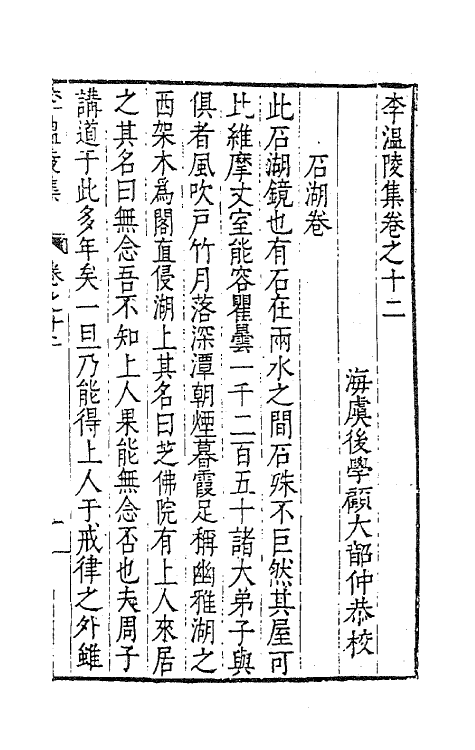 李溫陵集卷之十二
海虞後學顧大韶仲恭校
石湖卷
此石湖鏡也有石在兩水之間石殊不巨然其屋可
比維摩丈室能容瞿曇一千二百五十諸大弟子與
俱者風吹戶竹月落深潭朝煙暮霞足稱幽雅湖之
西架木為閣直侵湖上其名曰芝佛院有上人來居
之其名曰無念吾不知上人果能無念否也夫周子
講道于此多年矣一旦乃能得上人于戒律之外雖
李溫陵集 卷之十二 一